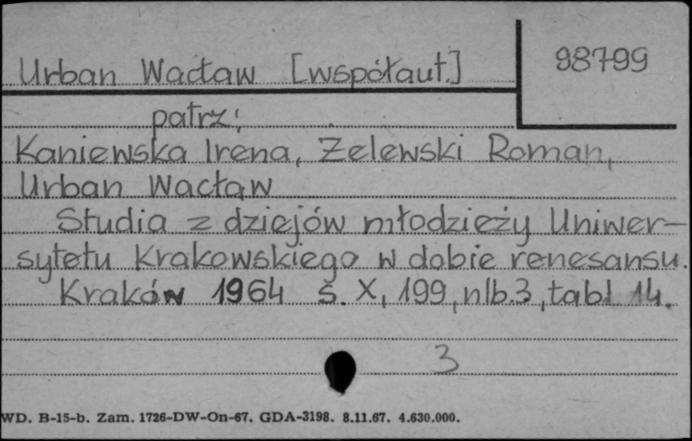 Urban Wacław [współaut.]
98799
patrz:
Kaniewska Irena, Żelewski Roman,
Urban Wacław
Studia z dziejów młodzieży Uniwer-
sytetu Krakowskiego w dobie renesansu.
Kraków 1964 s. X, 199, nlb. 3, tabl. 14.
3
WD. B-15-b. Zam. 1726-DW-On-67. GDA-3198. 8.11.67. 4.630.000.